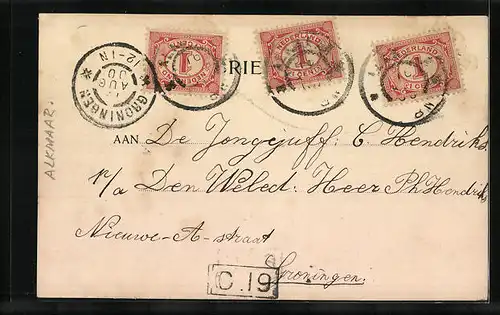 NEDERLAND
1
CENT
NEDERLAND
1
CENT
NEDERLAND
1
CENT
GRONINGEN
12-1N
AUG
00
RIE
ALKMAAR.
AAN De Jongejuff: C. Hendriks
p/a Den Weled: Heer Ph Hendriks
Nieuwe-A-straat
Groningen
C.19